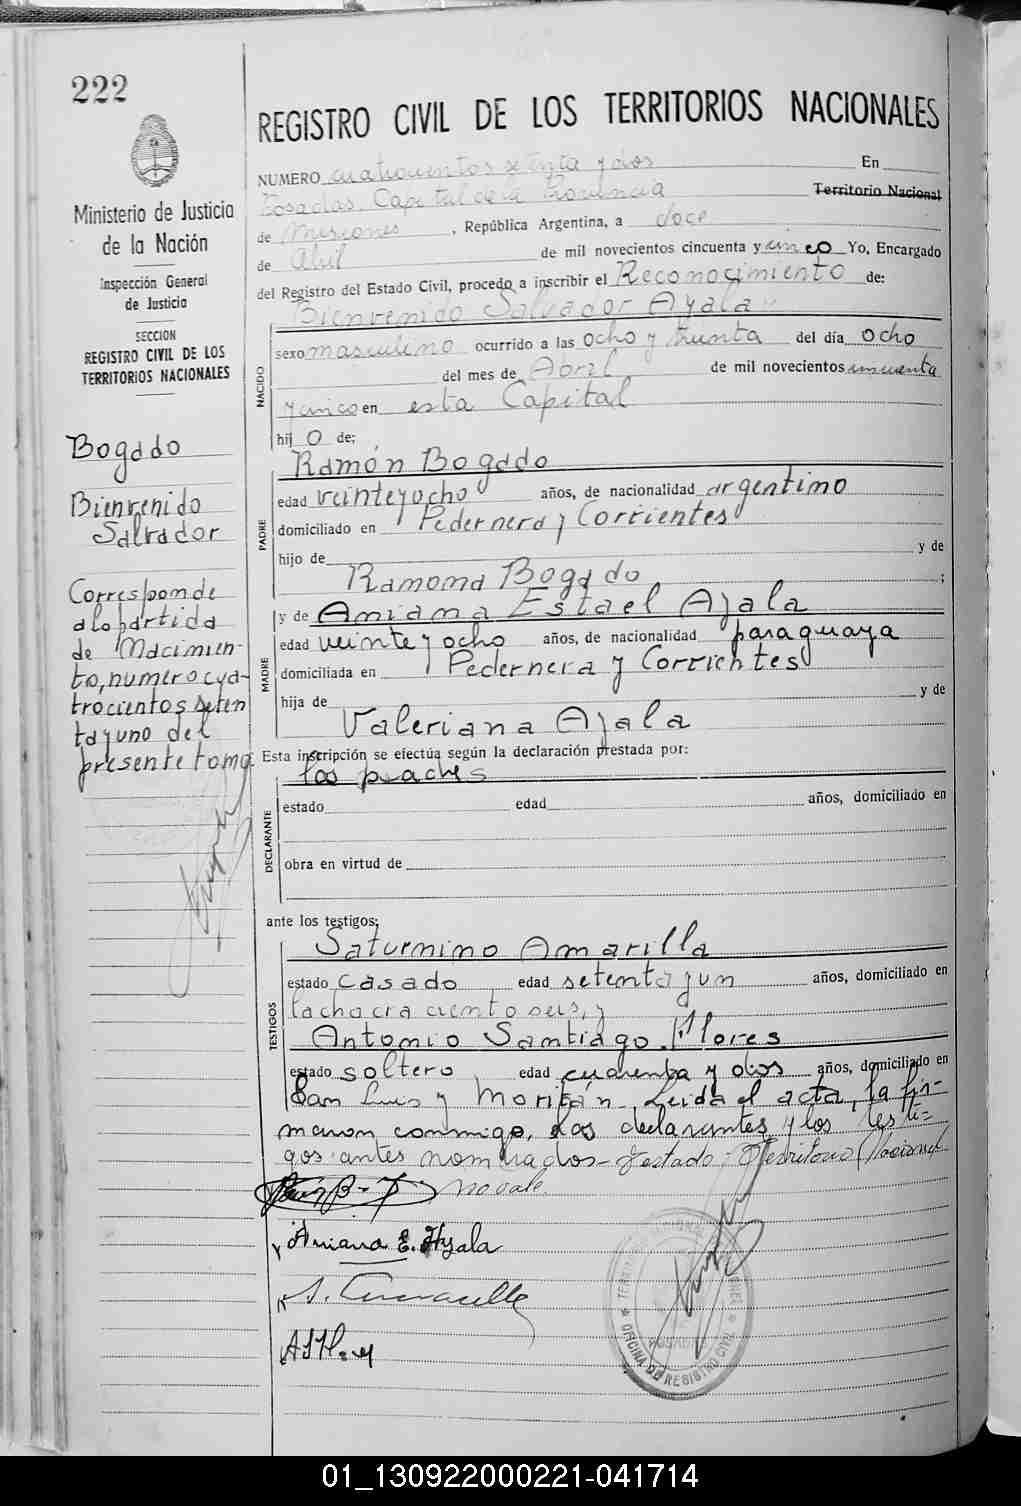 222
Ministerio de Justicia
de la Nación
Inspección General
de Justicia
SECCION
REGISTRO CIVIL DE LOS
TERRITORIOS NACIONALES
Bogado
Bienvenido
Salvador
Corresponde
a la partida
de Nacimien-
to, numero cua-
trocientos seten
ta y uno del
presente tomo
REGISTRO CIVIL DE LOS TERRITORIOS NACIONALES
NUMERO cuatrocientos setenta y dos En
Posadas, Capital de la Provincia Territorio Nacional
de Misiones, República Argentina, a doce
de Abril de mil novecientos cincuenta y cinco Yo, Encargado
del Registro del Estado Civil, procedo a inscribir el Reconocimiento de:
Bienvenido Salvador Ayala
NACIDO
sexo masculino ocurrido a las ocho y treinta del día ocho
del mes de Abril de mil novecientos cincuenta
y cinco en esta Capital
hijo de;
PADRE
Ramón Bogado
edad veinte y ocho años, de nacionalidad argentino
domiciliado en Pedernera y Corrientes
hijo de y de
Ramona Bogado ;
MADRE
y de Aniana Estael Ayala
edad veinte y ocho años, de nacionalidad paraguaya
domiciliada en Pedernera y Corrientes
hija de y de
Valeriana Ayala
Esta inscripción se efectúa según la declaración prestada por:
DECLARANTE
los padres
estado edad años, domiciliado en
obra en virtud de
ante los testigos;
TESTIGOS
Saturnino Amarilla
estado casado edad setenta y un años, domiciliado en
la chacra ciento seis, y
Antonio Santiago Flores
estado soltero edad cuarenta y dos años, domiciliado en
San Luis y Moritán. Leida el acta, la fir-
maron conmigo, los declarantes y los testi=
gos antes nombrados - Testado: Territorio Nacional
no vale.
Aniana E. Ayala
OFICINA DE REGISTRO CIVIL
POSADAS
01_130922000221-041714